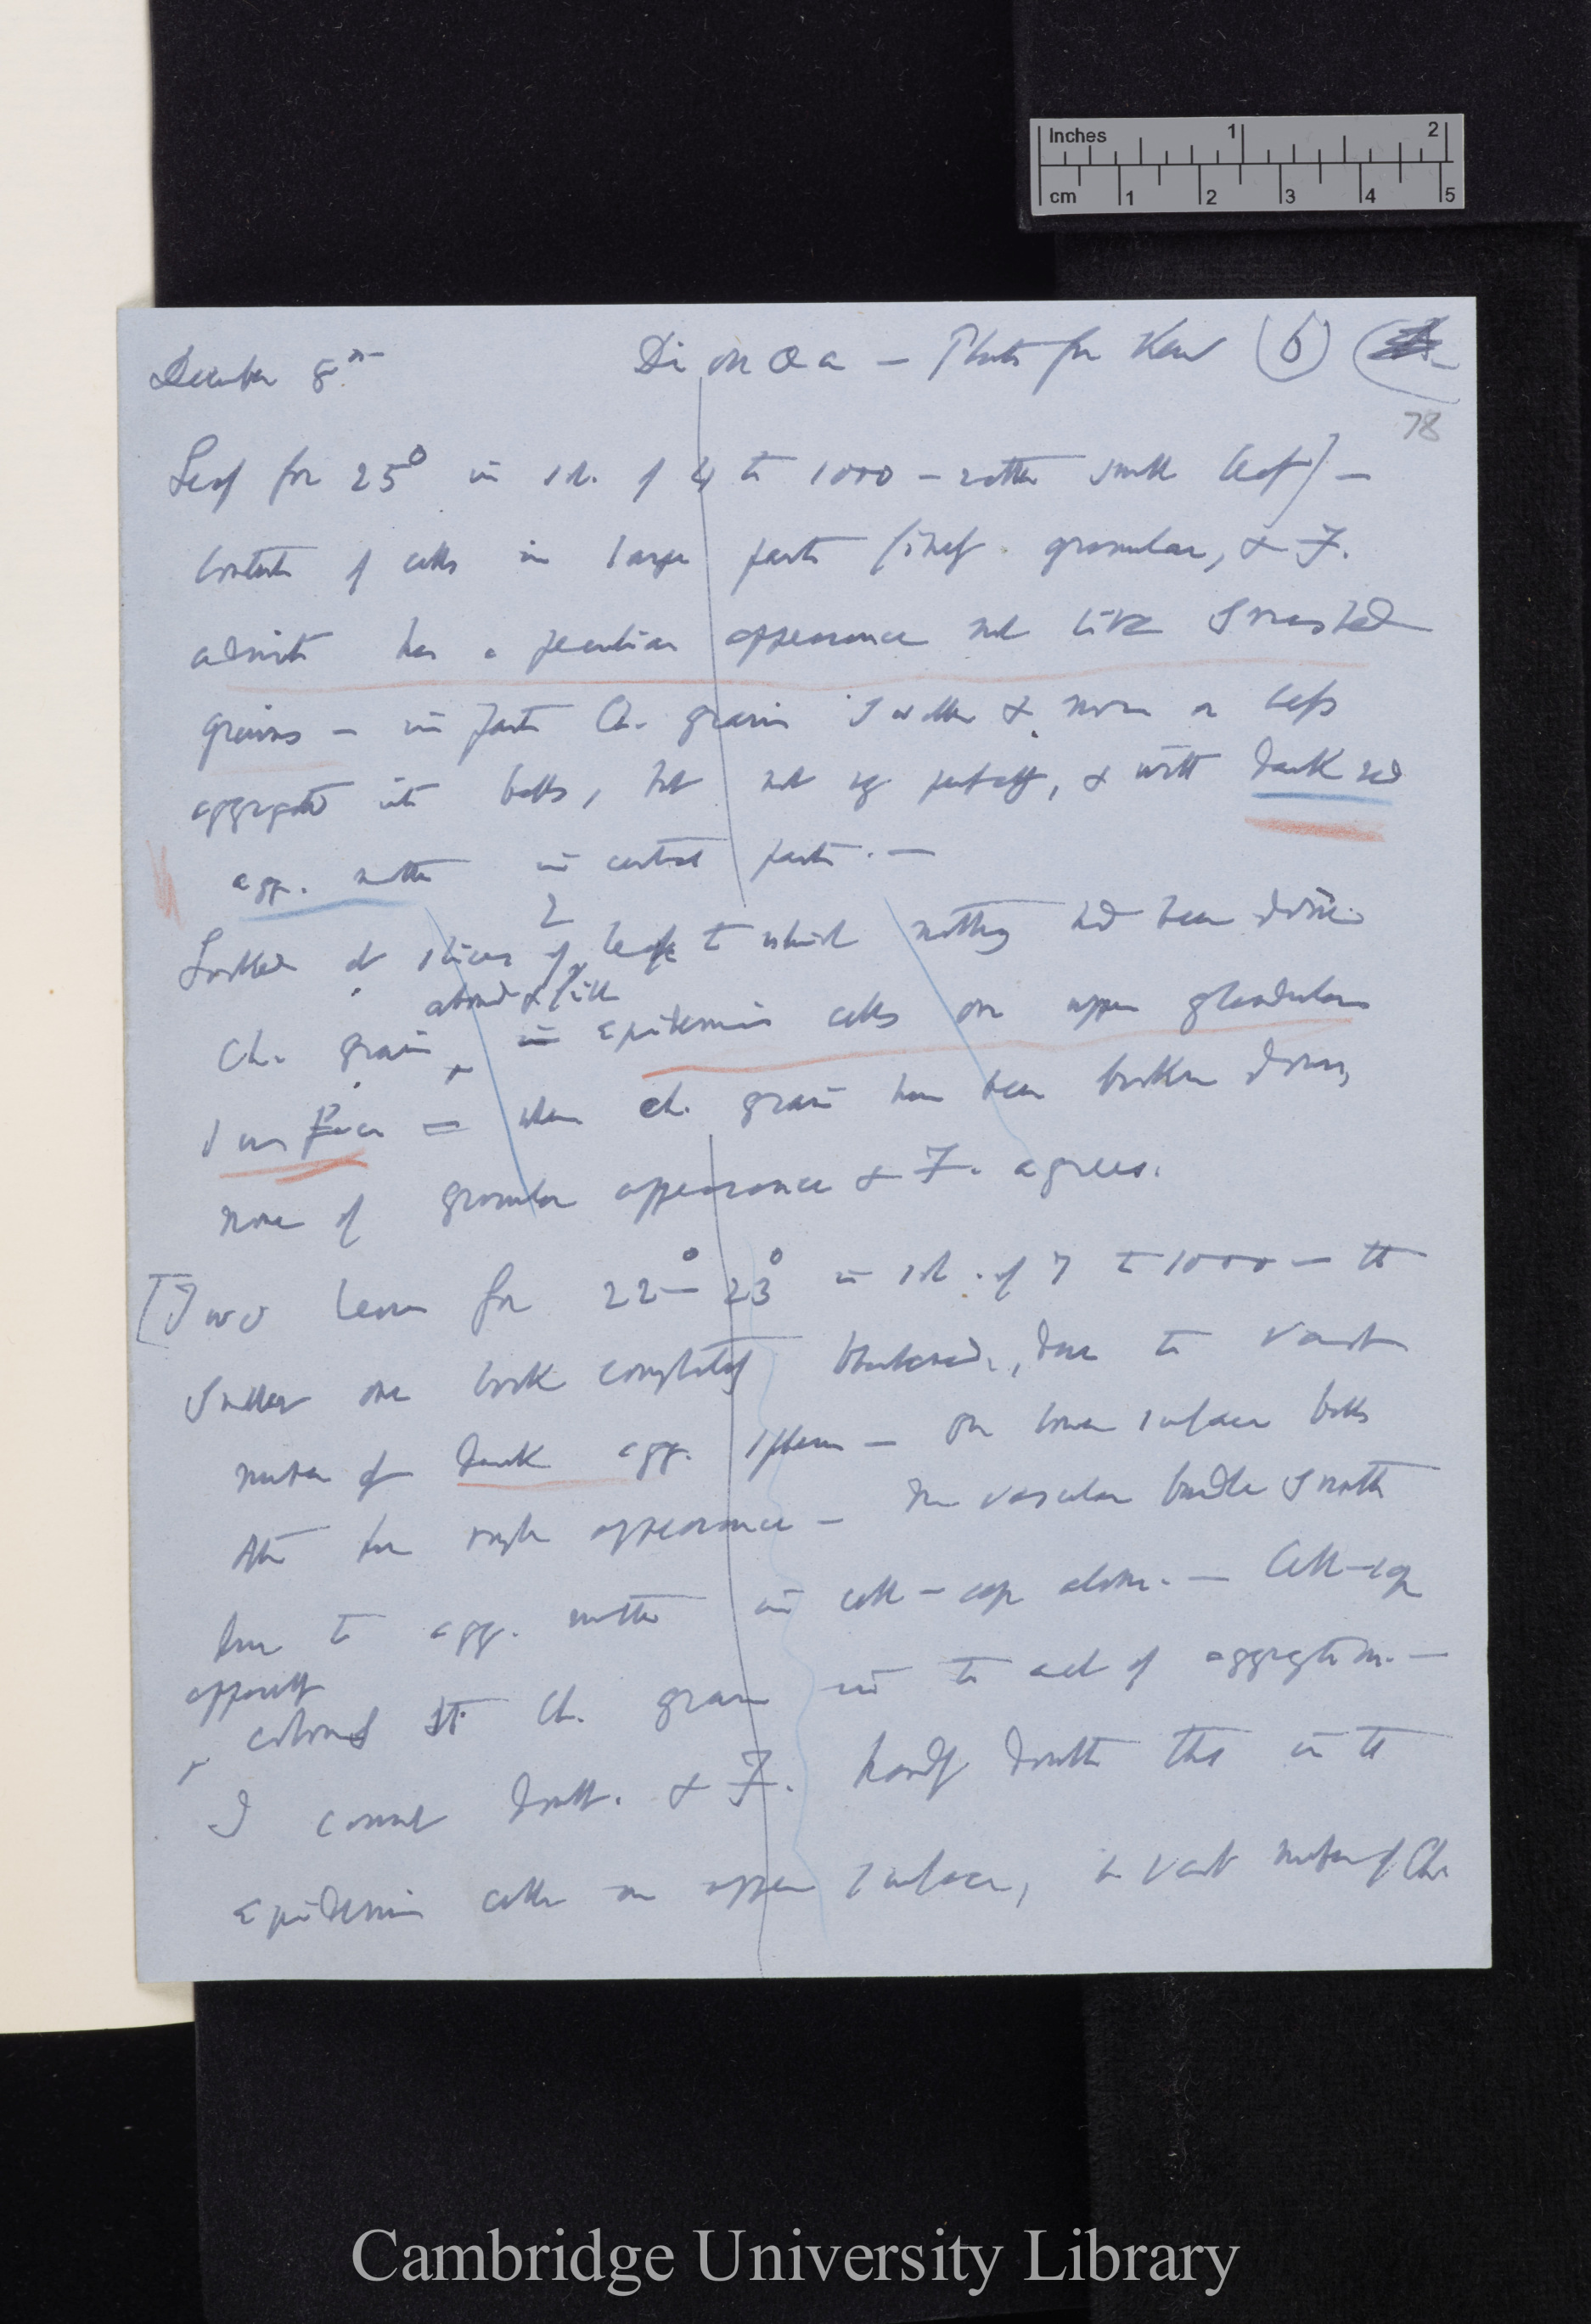 Inches 1 2
cm 1 2 3 4 5
December 8th
Dionaea — Plants from Kew (6)
78
Leaf for 25° in sol. of 4 to 1000 — rather small leaf] —
contents of cells in large parts granular, & F.
admits has a peculiar appearance not like smashed
grains — in parts Ch. grains swollen & more or less
aggregated into balls, but not perfectly, & with dark red
agg. matter in central parts. —
Looked at slices of 2 leaves to which nothing had been done
Ch. grains abound & fill in epidermis cells on upper glandular
surface — when ch. grains have been broken down,
none of granular appearance & F. agrees.
[Two leaves for 22°– 23° in sol. of 7 to 1000 — the
smaller one looks completely blackened, due to vast
number of dark agg. spheres — on lower surface balls
have rough appearance — The vascular bundle smooth
due to agg. matter in cell-sap alone. — Cell-sap
apparently
colours the Ch. grains in the act of aggregation. —
I cannot doubt. & F. hardly doubts this in the
epidermis cells on upper surface, in vast number of Ch.
Cambridge University Library